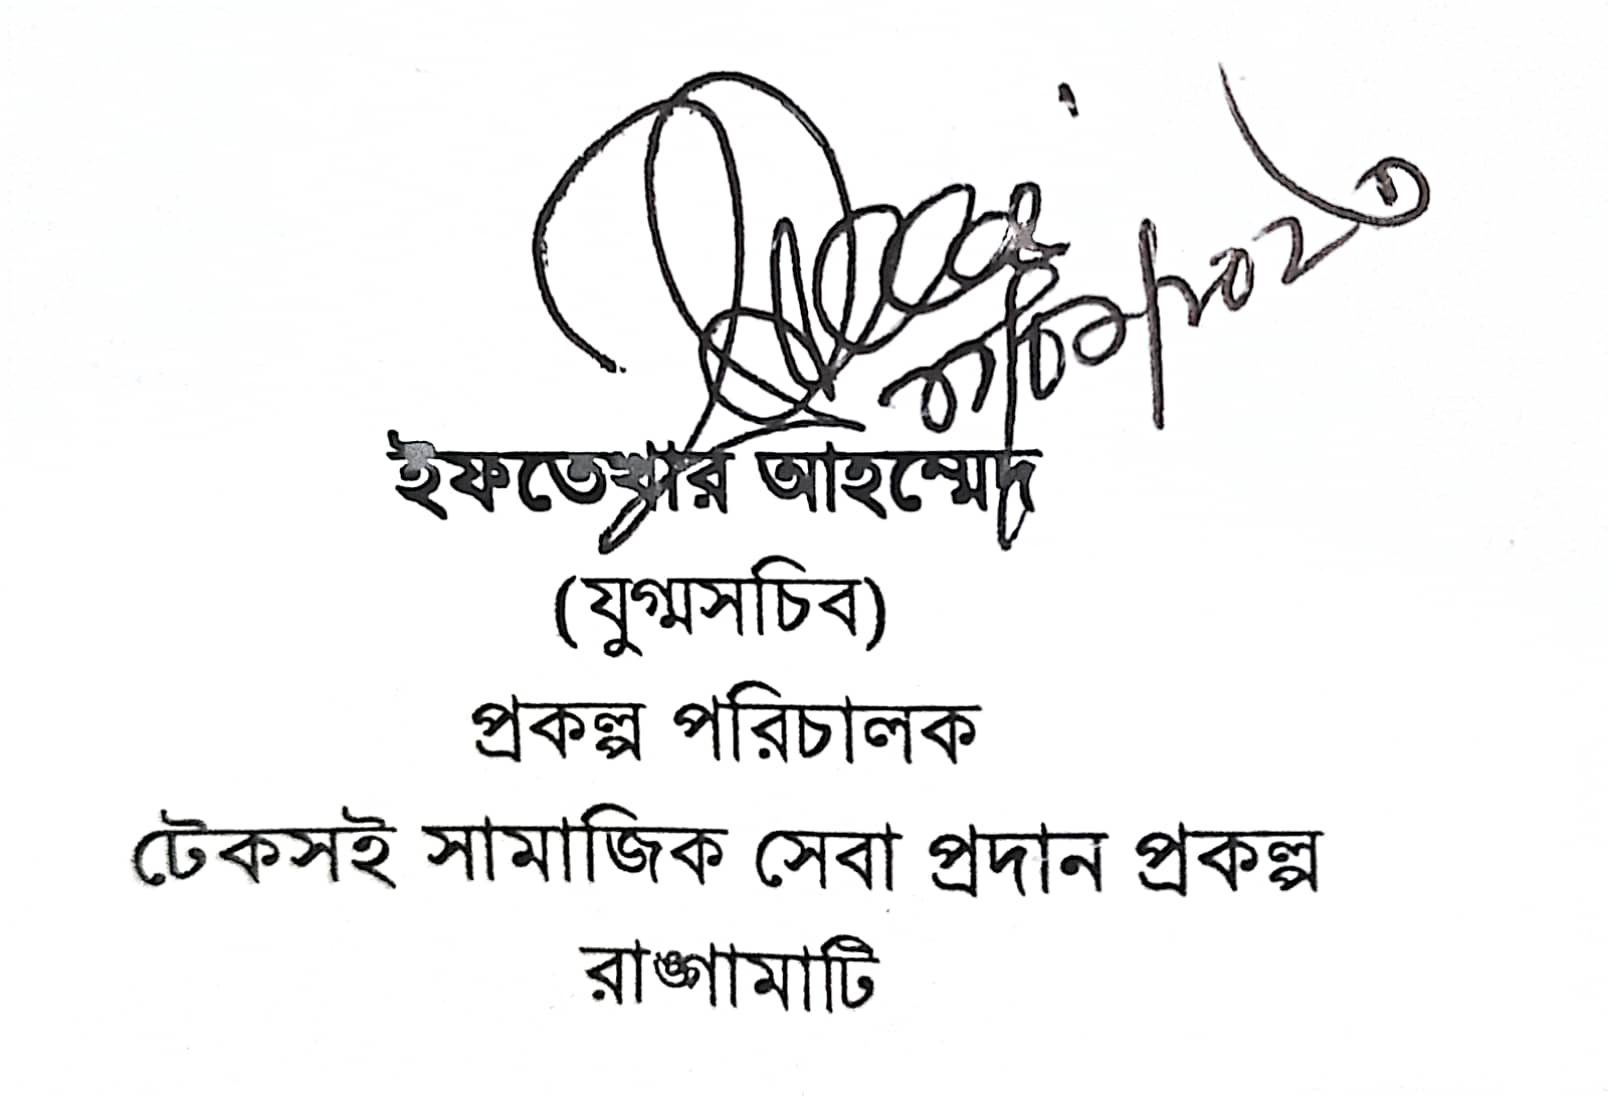 ইফতেখার আহম্মেদ
(যুগ্মসচিব)
প্রকল্প পরিচালক
টেকসই সামাজিক সেবা প্রদান প্রকল্প
রাঙ্গামাটি